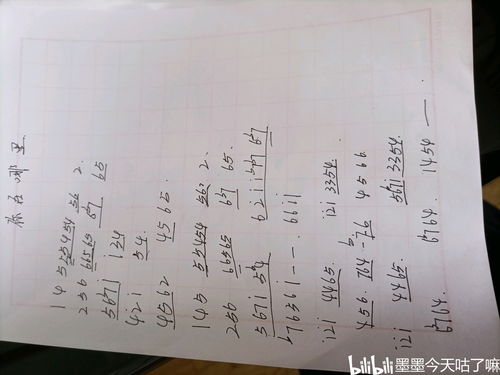 哪里
1 4 5 5 5 4 5 4 5 6 2.
2 5 6 6 6 5 6 5 6 7 6 5
5 6 7 i i 3 4
4 2 i 5 4.
4 5 i 2 4 5 6 5.
1 4 5 5 5 4 5 4 5 6 2.
2 5 6 6 6 5 6 5 6 7 6 5.
5 6 7 i 5 4 6 2 i i 6 7
i 7 6 5 6 i - - . 6 6 i i
i 2 i 4 4 6 5. i 2 i 3 3 5 4.
4 5 6 . 7 6 4 - 7 6 4 5 6 6
i 2 i 4 4 6 5. 5 6 7 i 3 3 5 4.
6 7 6 4. 6 7 6 4. 1 4 5 4 —
bilibili 墨墨今天咕了嘛